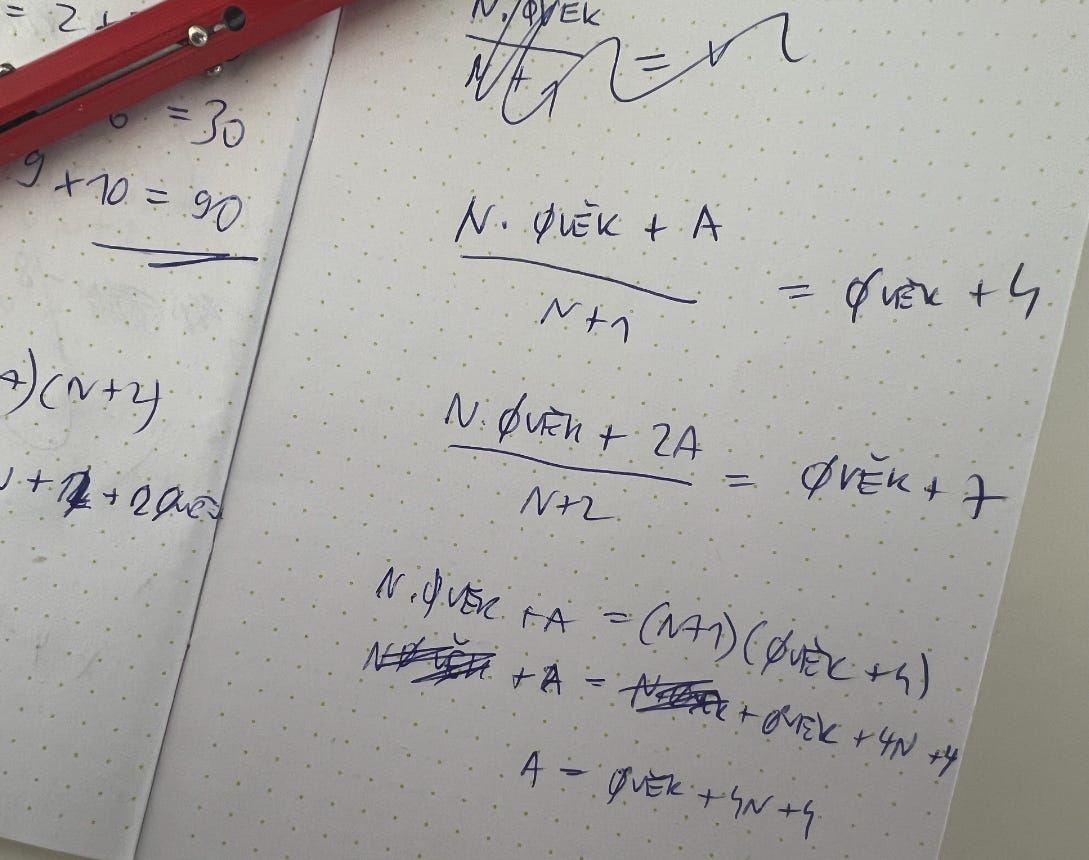 = 2 +
= 30
9 + 10 = 90
A)(N+2)
+ 2ØVĚ
N. ØVĚK
N + 1
=
N. ØVĚK + A
N+1
= ØVĚK + 4
N. ØVĚK + 2A
N+2
= ØVĚK + 7
N. ØVĚK + A = (N+1)(ØVĚK + 4)
+ A = + ØVĚK + 4N + 4
A = ØVĚK + 4N + 4